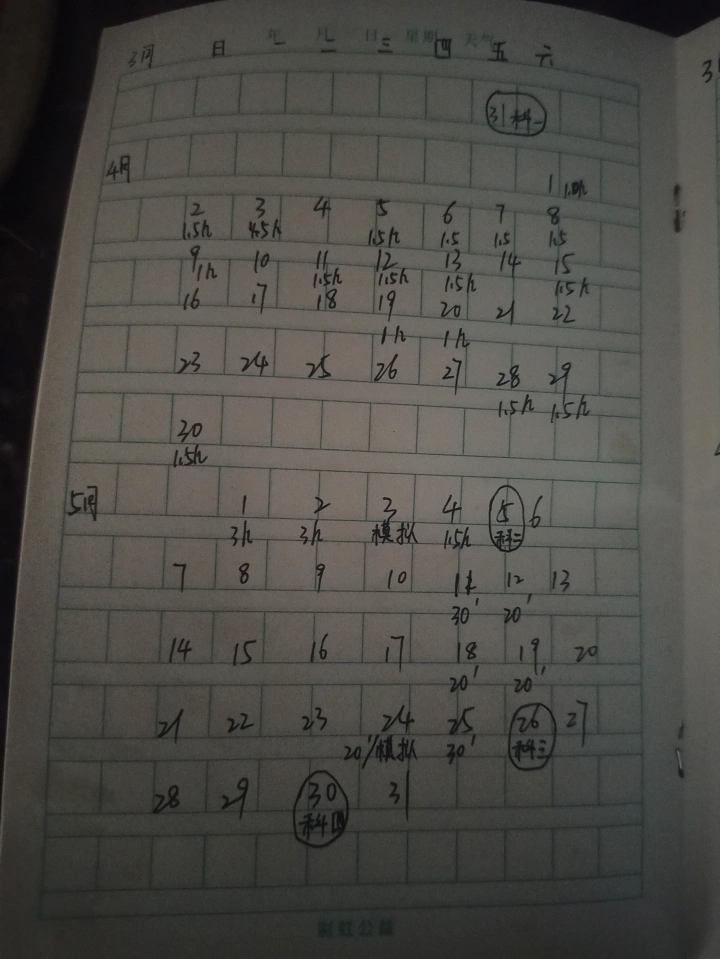 年 月 日 星期 天气
3月 日 一 二 三 四 五 六
31 科一
4月
1 1.0h
2 3 4 5 6 7 8
1.5h 4.5h 1.5h 1.5 1.5 1.5
9 10 11 12 13 14 15
1h 1.5h 1.5h 1.5h 1.5h
16 17 18 19 20 21 22
1h 1h
23 24 25 26 27 28 29
1.5h 1.5h
30
1.5h
5月 1 2 3 4 5 6
3h 3h 模拟 1.5h 科二
7 8 9 10 11 12 13
30' 20'
14 15 16 17 18 19 20
20' 20'
21 22 23 24 25 26 27
20'/模拟 30' 科三
28 29 30 31
科四
彩虹公益
3